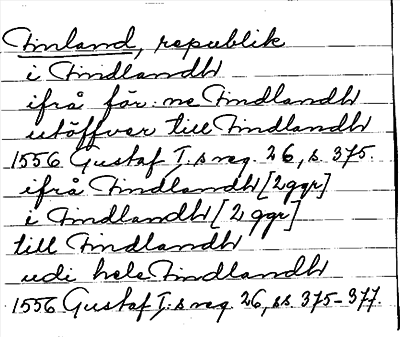 Finland, republik
i Findlandh
ifrå för:ne Findlandh
utöffver till Findlandh
1556 Gustaf I:s reg. 26, s. 375.
ifrå Findlandh [2 ggr]
i Findlandh [2 ggr]
till Findlandh
udi hele Findlandh
1556 Gustaf I:s reg. 26, ss. 375-377.